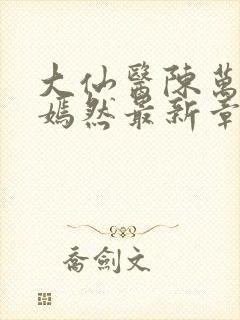 大仙醫陳萬
嫣然最新章
喬劍文